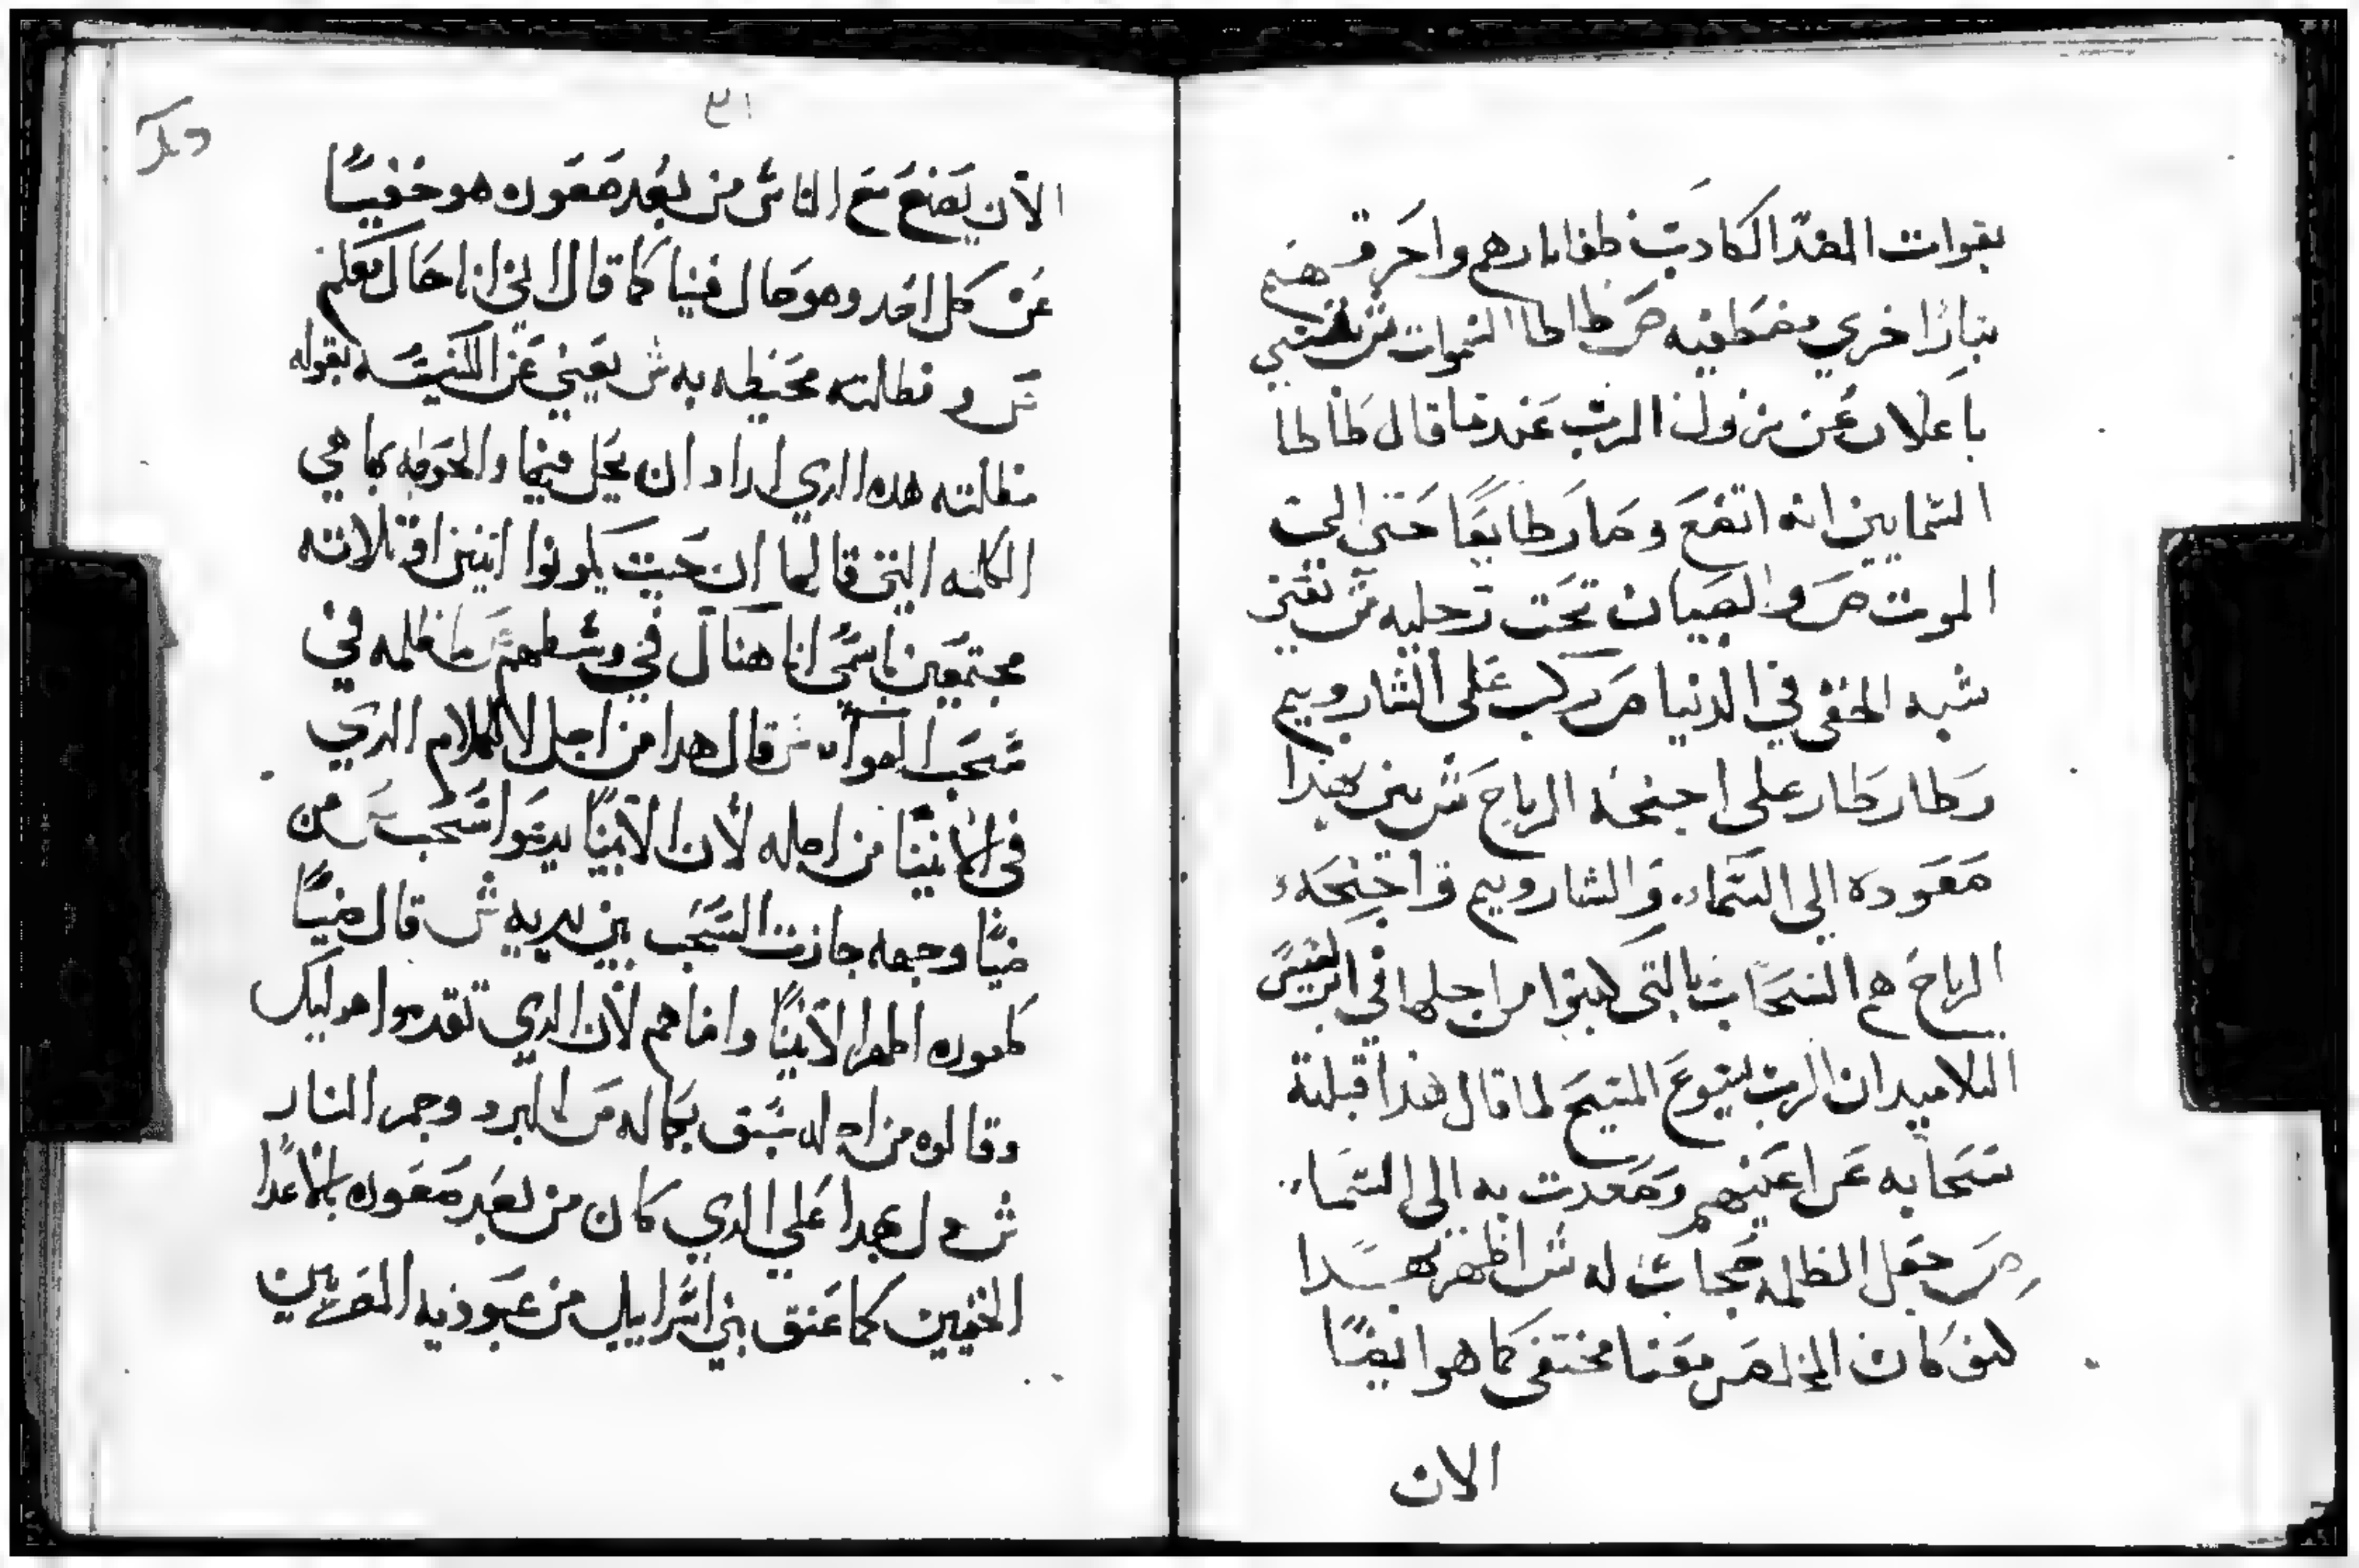 بقوات المضدا الكادبة طفا نارهم واحرقهم
بنار اخري مضطفيه ص طاطا السموات ش يعني
باعلان عن نزول الرب عندما قال طاطا
السما يبين انه اتضع وصار طايعا حتي الي
الموت ص والضباب تحت رجليه ش يعني
شبه الخفي في الدنيا ص ركب علي الشاروبيم
وطار طار علي اجنحه الرياح ش يبين بهذا
صعوده الي السماء. والشاروبيم واجنحه
الرياح هم السحاب التي كتبوا من اجلها في ابركسيس
التلاميد ان الرب يسوع المسيح لما قال هذا قبلته
سحابه عن اعينهم وصعدت به الي السماء..
ص جعل الظلمه حجاب له ش اظهر بهدا
كيف كان المخلص معنا مختفي كما هو ايضا
الان
٣١
الان يصنع مع الناس من بعد صعوده هو خفيا
عن كل احد وهو حال فينا كما قال اني انا حال معكم
ص ومظلته محيطه به ش يعني عن الكنيسه بقوله
مظلته هده الدي اراد ان يحل فيها والحوطه بها هي
الكلمه التي قالها ان حيت يكونوا اتنين او تلاته
مجتمعين باسمي انا هناك في وسطهم ص ما مظلمه في
سحب الهواء ش قال هدا من اجل الكلام الدي
في الانبيا من اجله لأن الانبيا يدعوا سحب ص من
ضيا وجهه جازت السحب بين يديه ش قال ضيا
ظهوره اظهر الانبيا وافاهم لأن الدي تقدموا هوليك
وقالوه من اجله سبق بكماله ص البرد وجمر النار
ش دل بهدا علي الدي كان من بعد صعوده بالاعدا
الخفيين كما عتق بني اسراييل من عبوديه المصريين